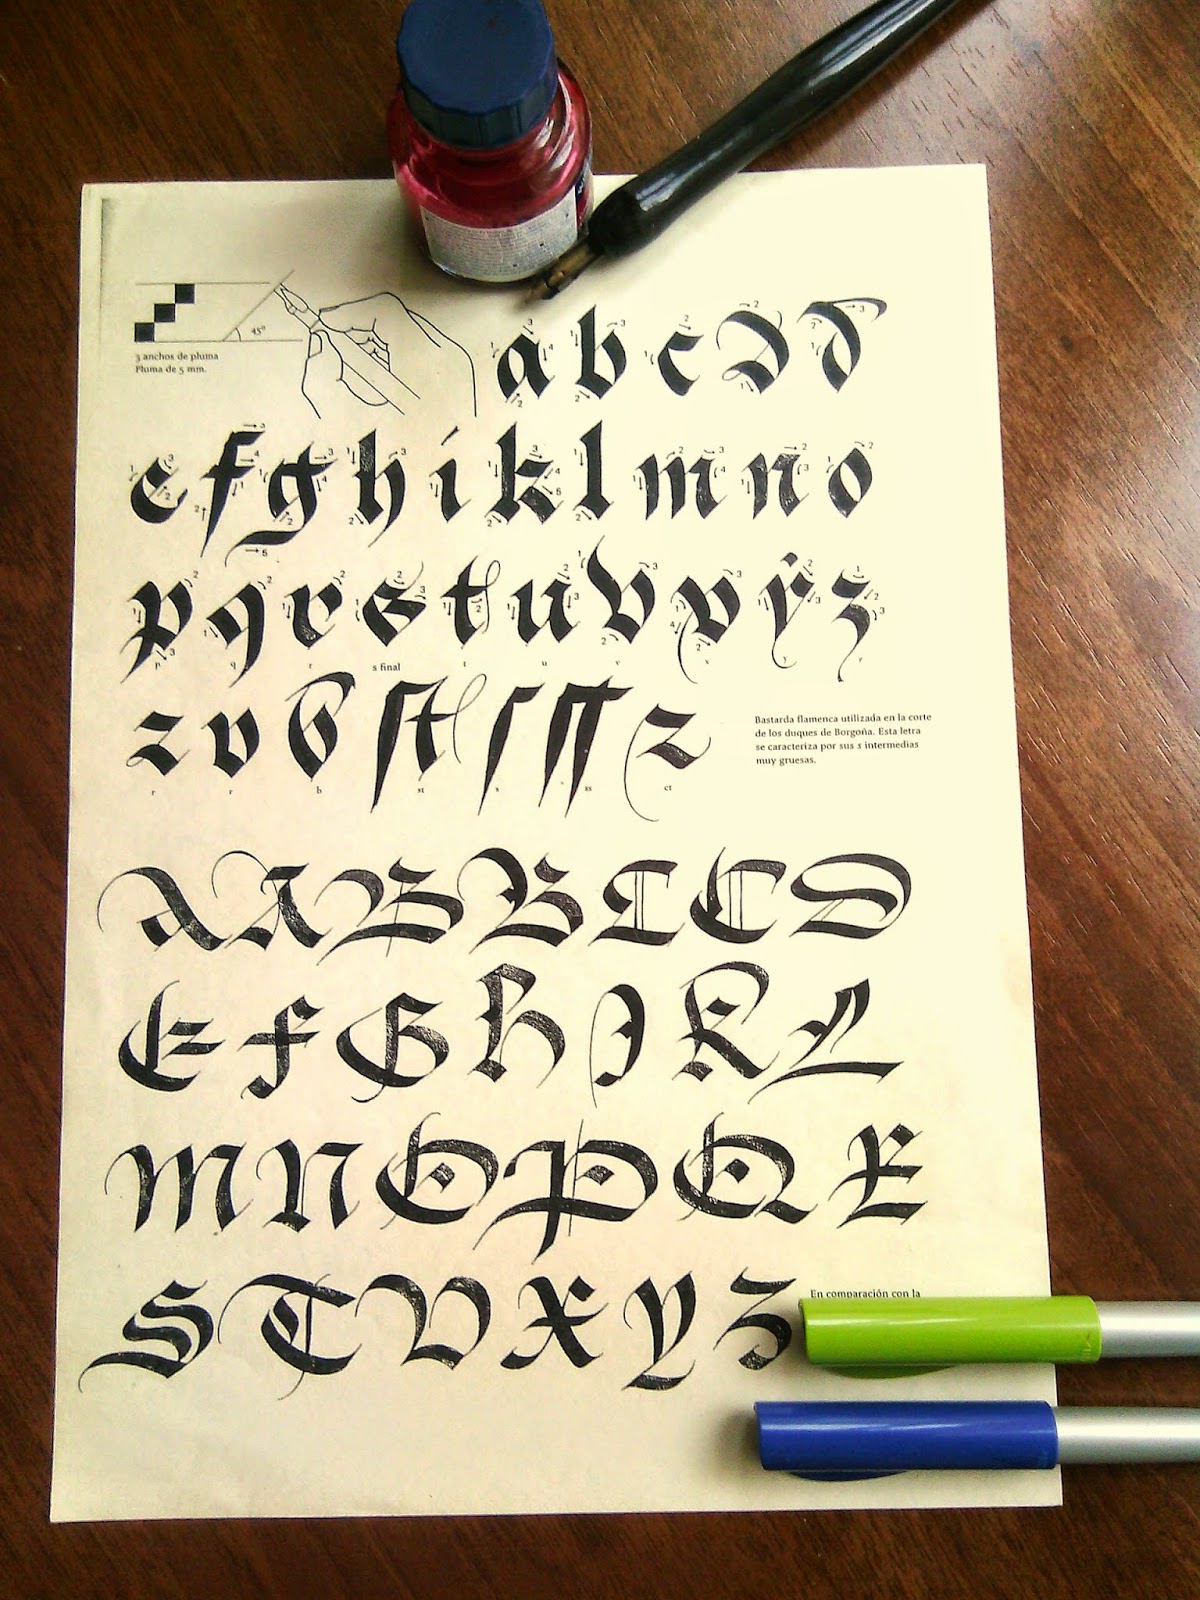 45º
3 anchos de pluma
Pluma de 5 mm.
a b c d d
e f g h i k l m n o
p q r s t u v v ÿ z
p q r s final t u v x y r
z v b st ſ ſſ z
r r b st s ss ct
Bastarda flamenca utilizada en la corte
de los duques de Borgoña. Esta letra
se caracteriza por sus s intermedias
muy gruesas.
A A B B C C D
E F G H I K L
M N O P Q R
S T V X Y Z
En comparación con la